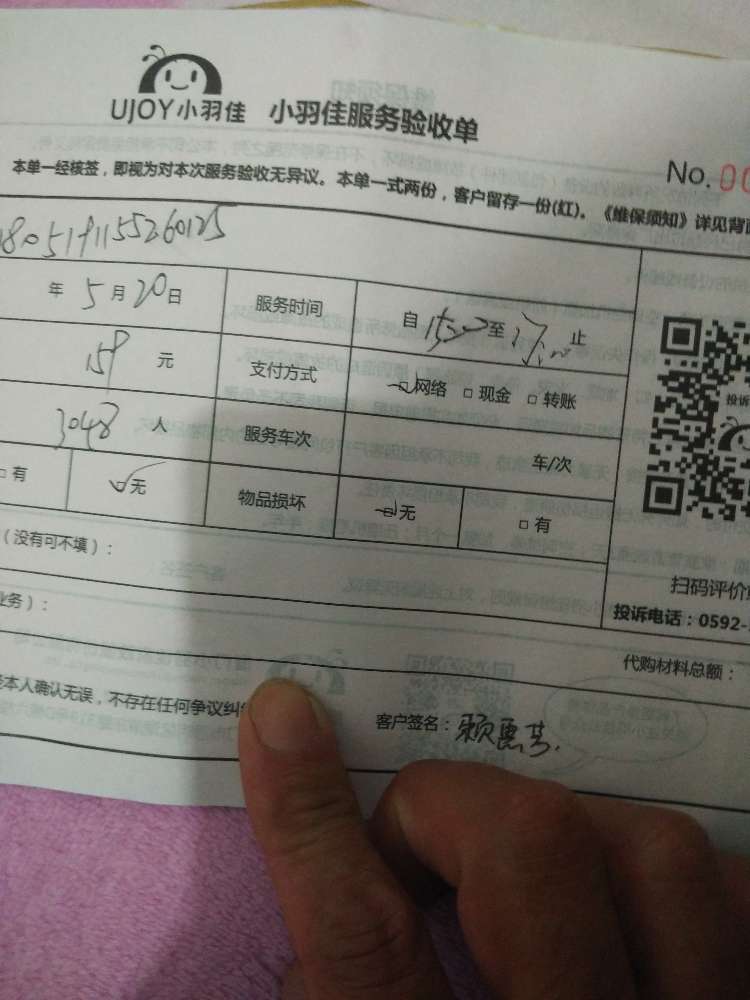 UJOY小羽佳 小羽佳服务验收单
No. 00
本单一经核签，即视为对本次服务验收无异议。本单一式两份，客户留存一份(红)。《维保须知》详见背面
180519115526012
年 5 月 20 日 服务时间 自 15:00 至 17:00 止
159 元 支付方式 网络 □ 现金 □ 转账
3048 人 服务车次 车/次
□ 有 ☑ 无 物品损坏 无 □ 有
投诉
（没有可不填）：
扫码评价
业务）：
投诉电话：0592-
代购材料总额：
本人确认无误，不存在任何争议纠
客户签名：赖惠